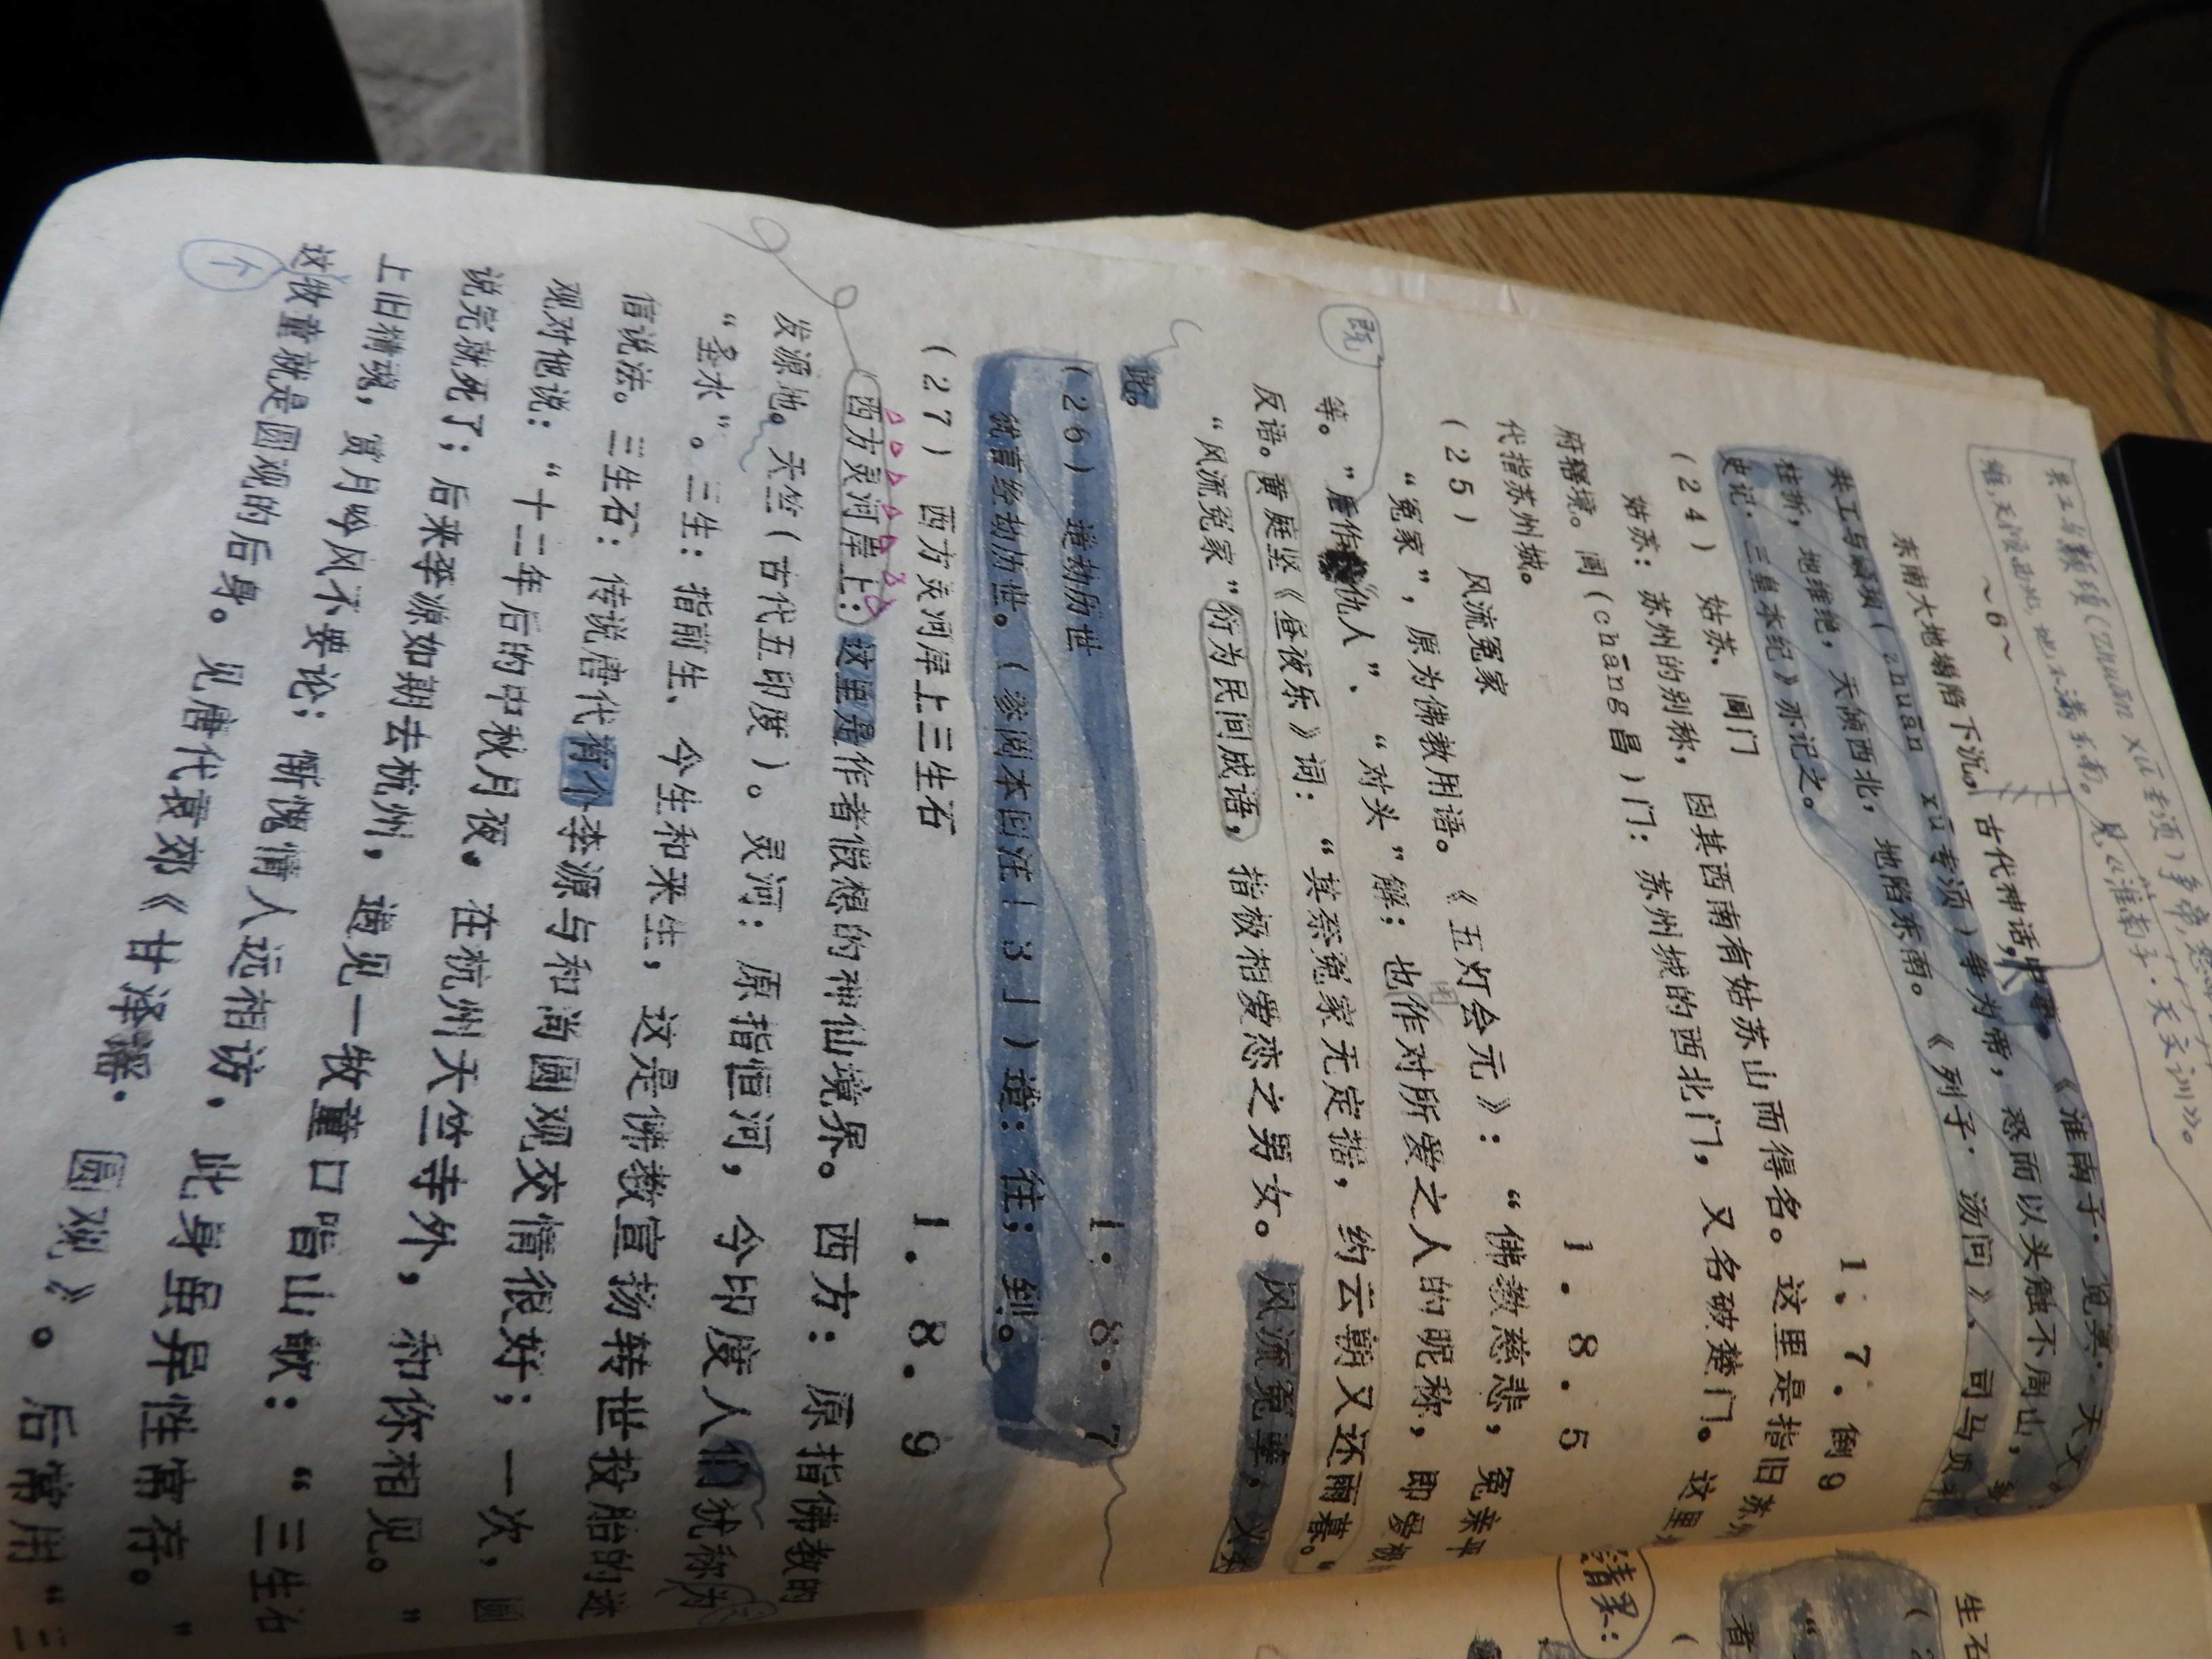 共工与颛顼(Zhuān xū 专须)争帝,怒
维,天倾西北,地不满东南。见《淮南子·天文训》。
~6~
东南大地塌陷下沉。古代神话,《淮南子·览冥·天文》
共工与颛顼(zhuān xū专须)争为帝,怒而以头触不周山,
柱折,地维绝,天倾西北,地陷东南。《列子·汤问》、司马贞
史记·三皇本纪》亦记之。
(24) 姑苏、阊门 1、7.倒9
姑苏:苏州的别称,因其西南有姑苏山而得名。这里是指旧苏
府辖境。阊(chāng昌)门:苏州城的西北门,又名破楚门。这里
代指苏州城。
(25) 风流冤家 1.8.5
“冤家”,原为佛教用语。《五灯会元》:“佛教慈悲,冤亲平
等。”既作“仇人”、“对头”解;也用作对所爱之人的昵称,即爱极
反语。黄庭坚《昼夜乐》词:“其奈冤家无定据,约云朝又还雨暮。”
“风流冤家”衍为民间成语,指极相爱恋之男女。风流冤孽,义
此。
(26) 造劫历世 1.8.7
犹言经劫历世。(参阅本回注[3])造:往;到。
(27) 西方灵河岸上三生石 1.8.9
西方灵河岸上:这里是作者假想的神仙境界。西方:原指佛教的
发源地。天竺(古代五印度)。灵河:原指恒河,今印度人们犹称为
“圣水”。三生:指前生、今生和来生,这是佛教宣扬转世投胎的迷
信说法。三生石:传说唐代有个李源与和尚圆观交情很好;一次,圆
观对他说:“十二年后的中秋月夜,在杭州天竺寺外,和你相见。”
说完就死了;后来李源如期去杭州,遇见一牧童口唱山歌:“三生石
上旧精魂,赏月吟风不要论;惭愧情人远相访,此身虽异性常存。”
这牧童就是圆观的后身。见唐代袁郊《甘泽谣·圆观》。后常用“三
生石
者
清累: